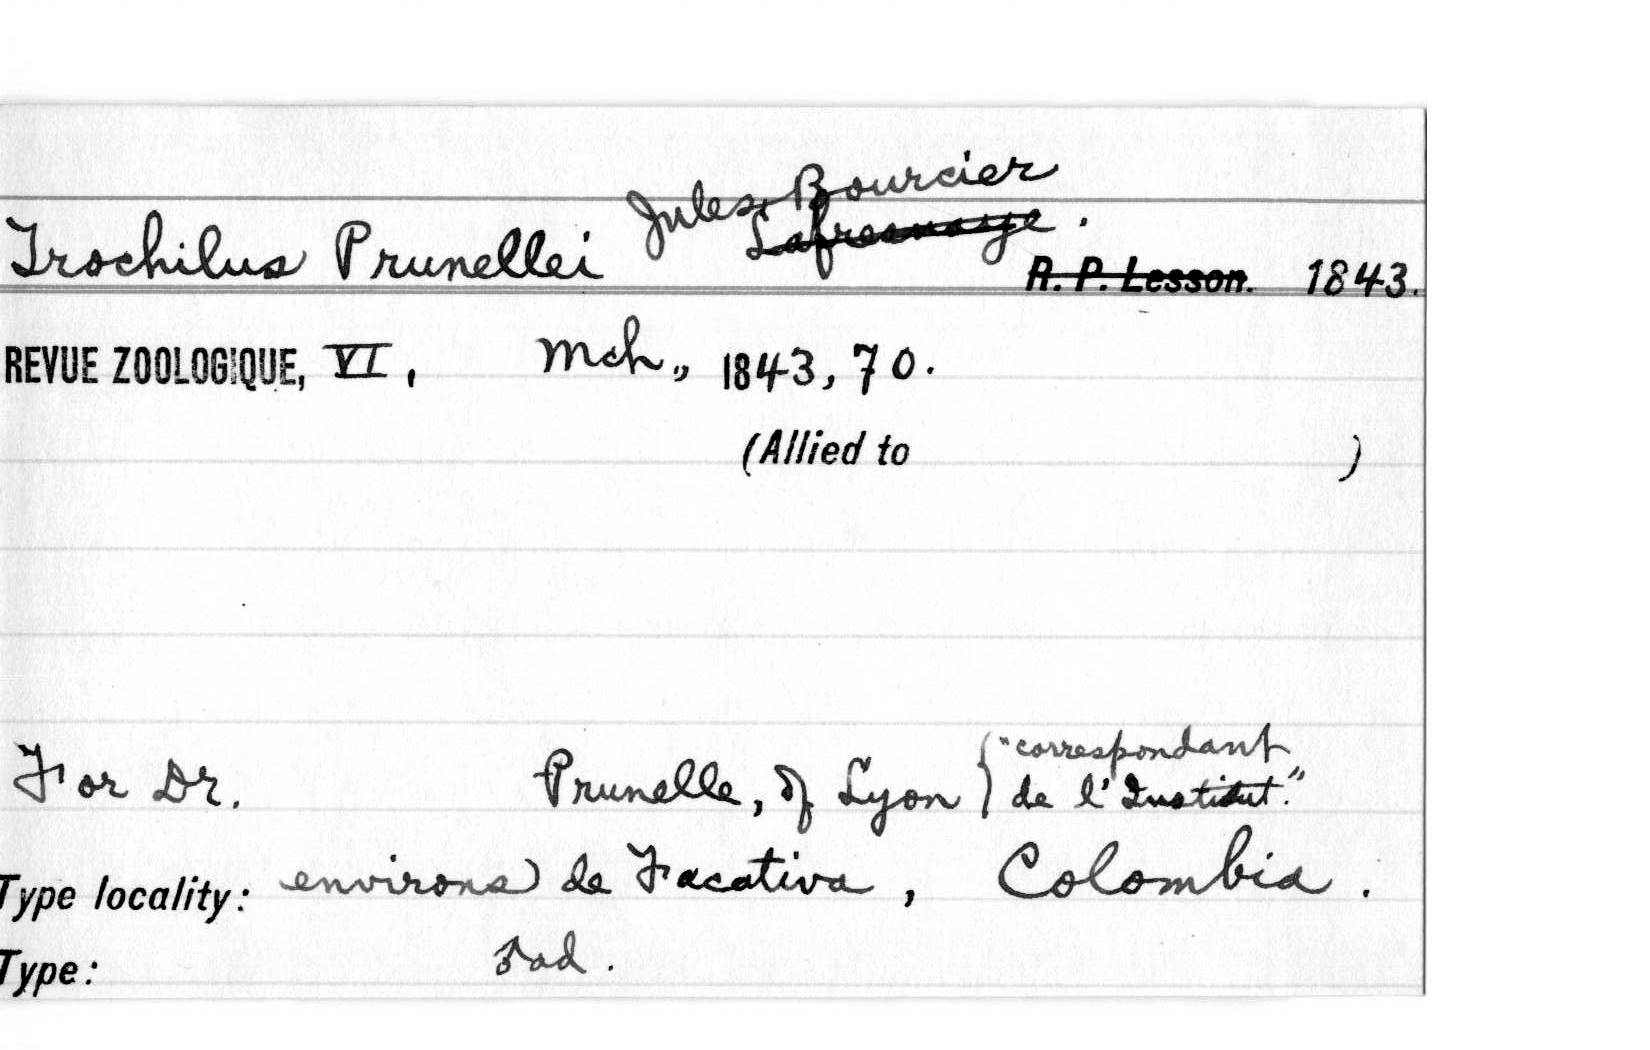 Jules Bourcier
Lafresnaye.
Trochilus Prunellei R. P. Lesson. 1843.
REVUE ZOOLOGIQUE, VI, Mch., 1843, 70.
(Allied to )
"correspondant
For Dr. Prunelle, of Lyon { de l'Institut."
Type locality: environs de Facativa, Colombia.
Type: